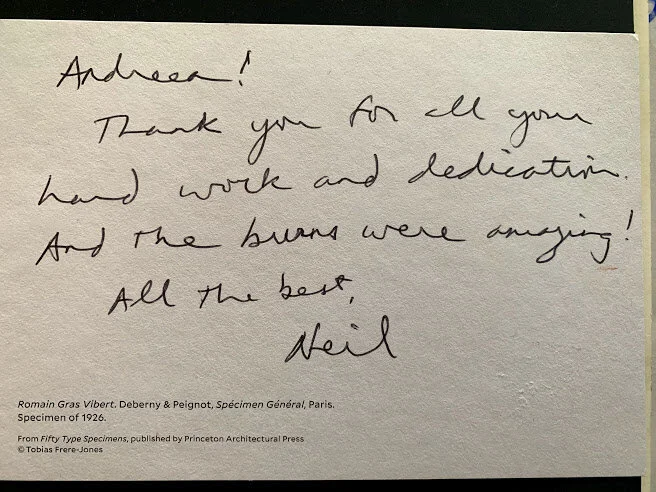 Andreea!
Thank you for all your
hard work and dedication.
And the burns were amazing!
All the best,
Neil
Romain Gras Vibert. Deberny & Peignot, Spécimen Général, Paris.
Specimen of 1926.
From Fifty Type Specimens, published by Princeton Architectural Press
© Tobias Frere-Jones